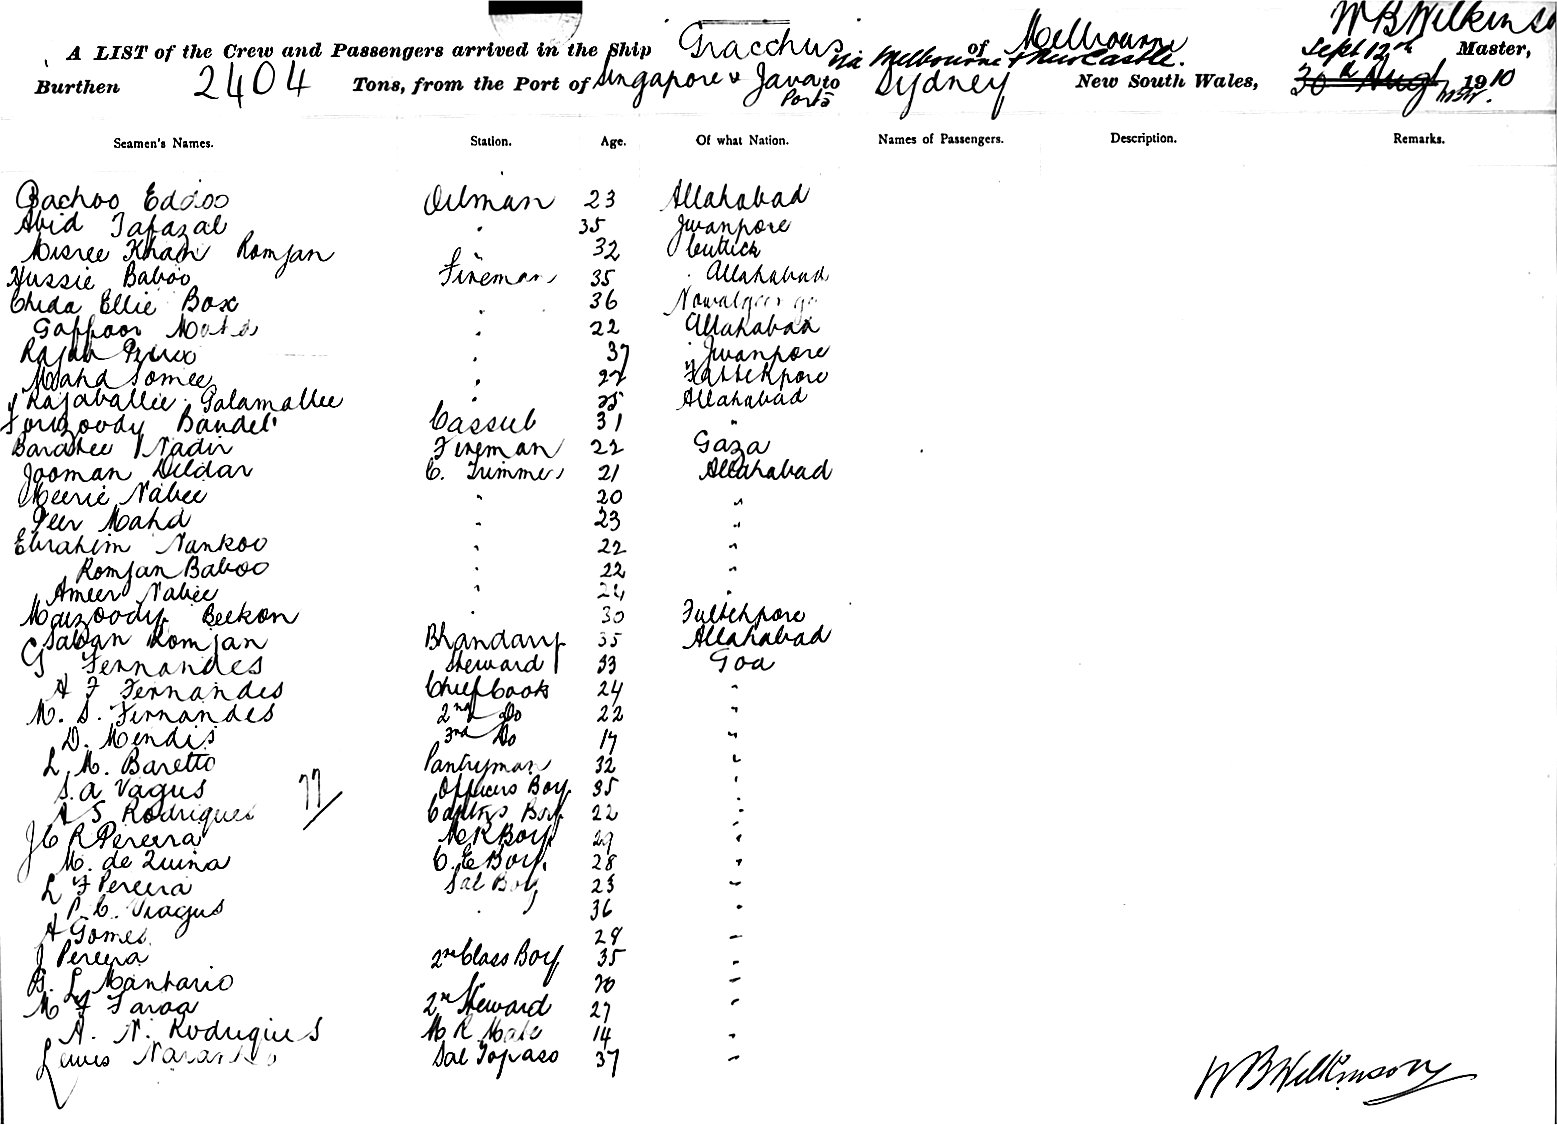 W B Wilkinso
A LIST of the Crew and Passengers arrived in the Ship Gracchus of Melbourne Master,
via Melbourne & NewCastle. Sept 12th
Burthen 2404 Tons, from the Port of Singapore & Java Ports to Sydney New South Wales, 30th Aug 1910
Seamen's Names. Station. Age. Of what Nation. Names of Passengers. Description. Remarks.
Bachoo Eddoo Oilman 23 Allahabad
Abid Tafazal " 35 Jwanpore
Misree Khan Romjan 32 Cuttick
Hussie Baboo Fireman 35 Allahabad
Cheda Ellie Box " 36
Gaffoor Mahd " 22 Allahabad
Rajab " 37 Jwanpore
Mahd Somee " 22 Fattehpore
Rajaballie Galamallee " 25 Allahabad
Bandel Cassub 31 "
Barathee Nadir Fireman 22 Gaza
Jooman Dildar C. Trimmer 21 Allahabad
Meerie Nabee " 20 "
Peer Mahd " 23 "
Ebrahim Nankoo " 22 "
Romjan Baboo " 22 "
Ameer Nabee " "
Mauzoody Beekon " 30 Futtehpore
Saban Romjan Bhandary 35 Allahabad
G Fernandes Steward 33 Goa
A F Fernandes Chief Cook 24 "
M. S. Fernandes 2nd Do 22 "
D. Mendis 3rd Do 17 "
L. M. Baretto Pantryman 32 "
S. A Vagus Officers Boy 35 "
A S Rodrigues Captns Boy 22 "
77
J C R Pereira M R Boy 29 "
M. de Quina C. E Boy. 28 "
L F Pereira Sal Boy 23 "
P. C. Viagus " 36 "
A Gomes 28 "
J Pereira 2nd Class Boy 35 "
G. L Mantario " 20 "
M F Faroa 2nd Steward 27 "
A. N. Rodrigues M R Mate 14 "
Lewis Sal Topaso 37 "
W B Wilkinson